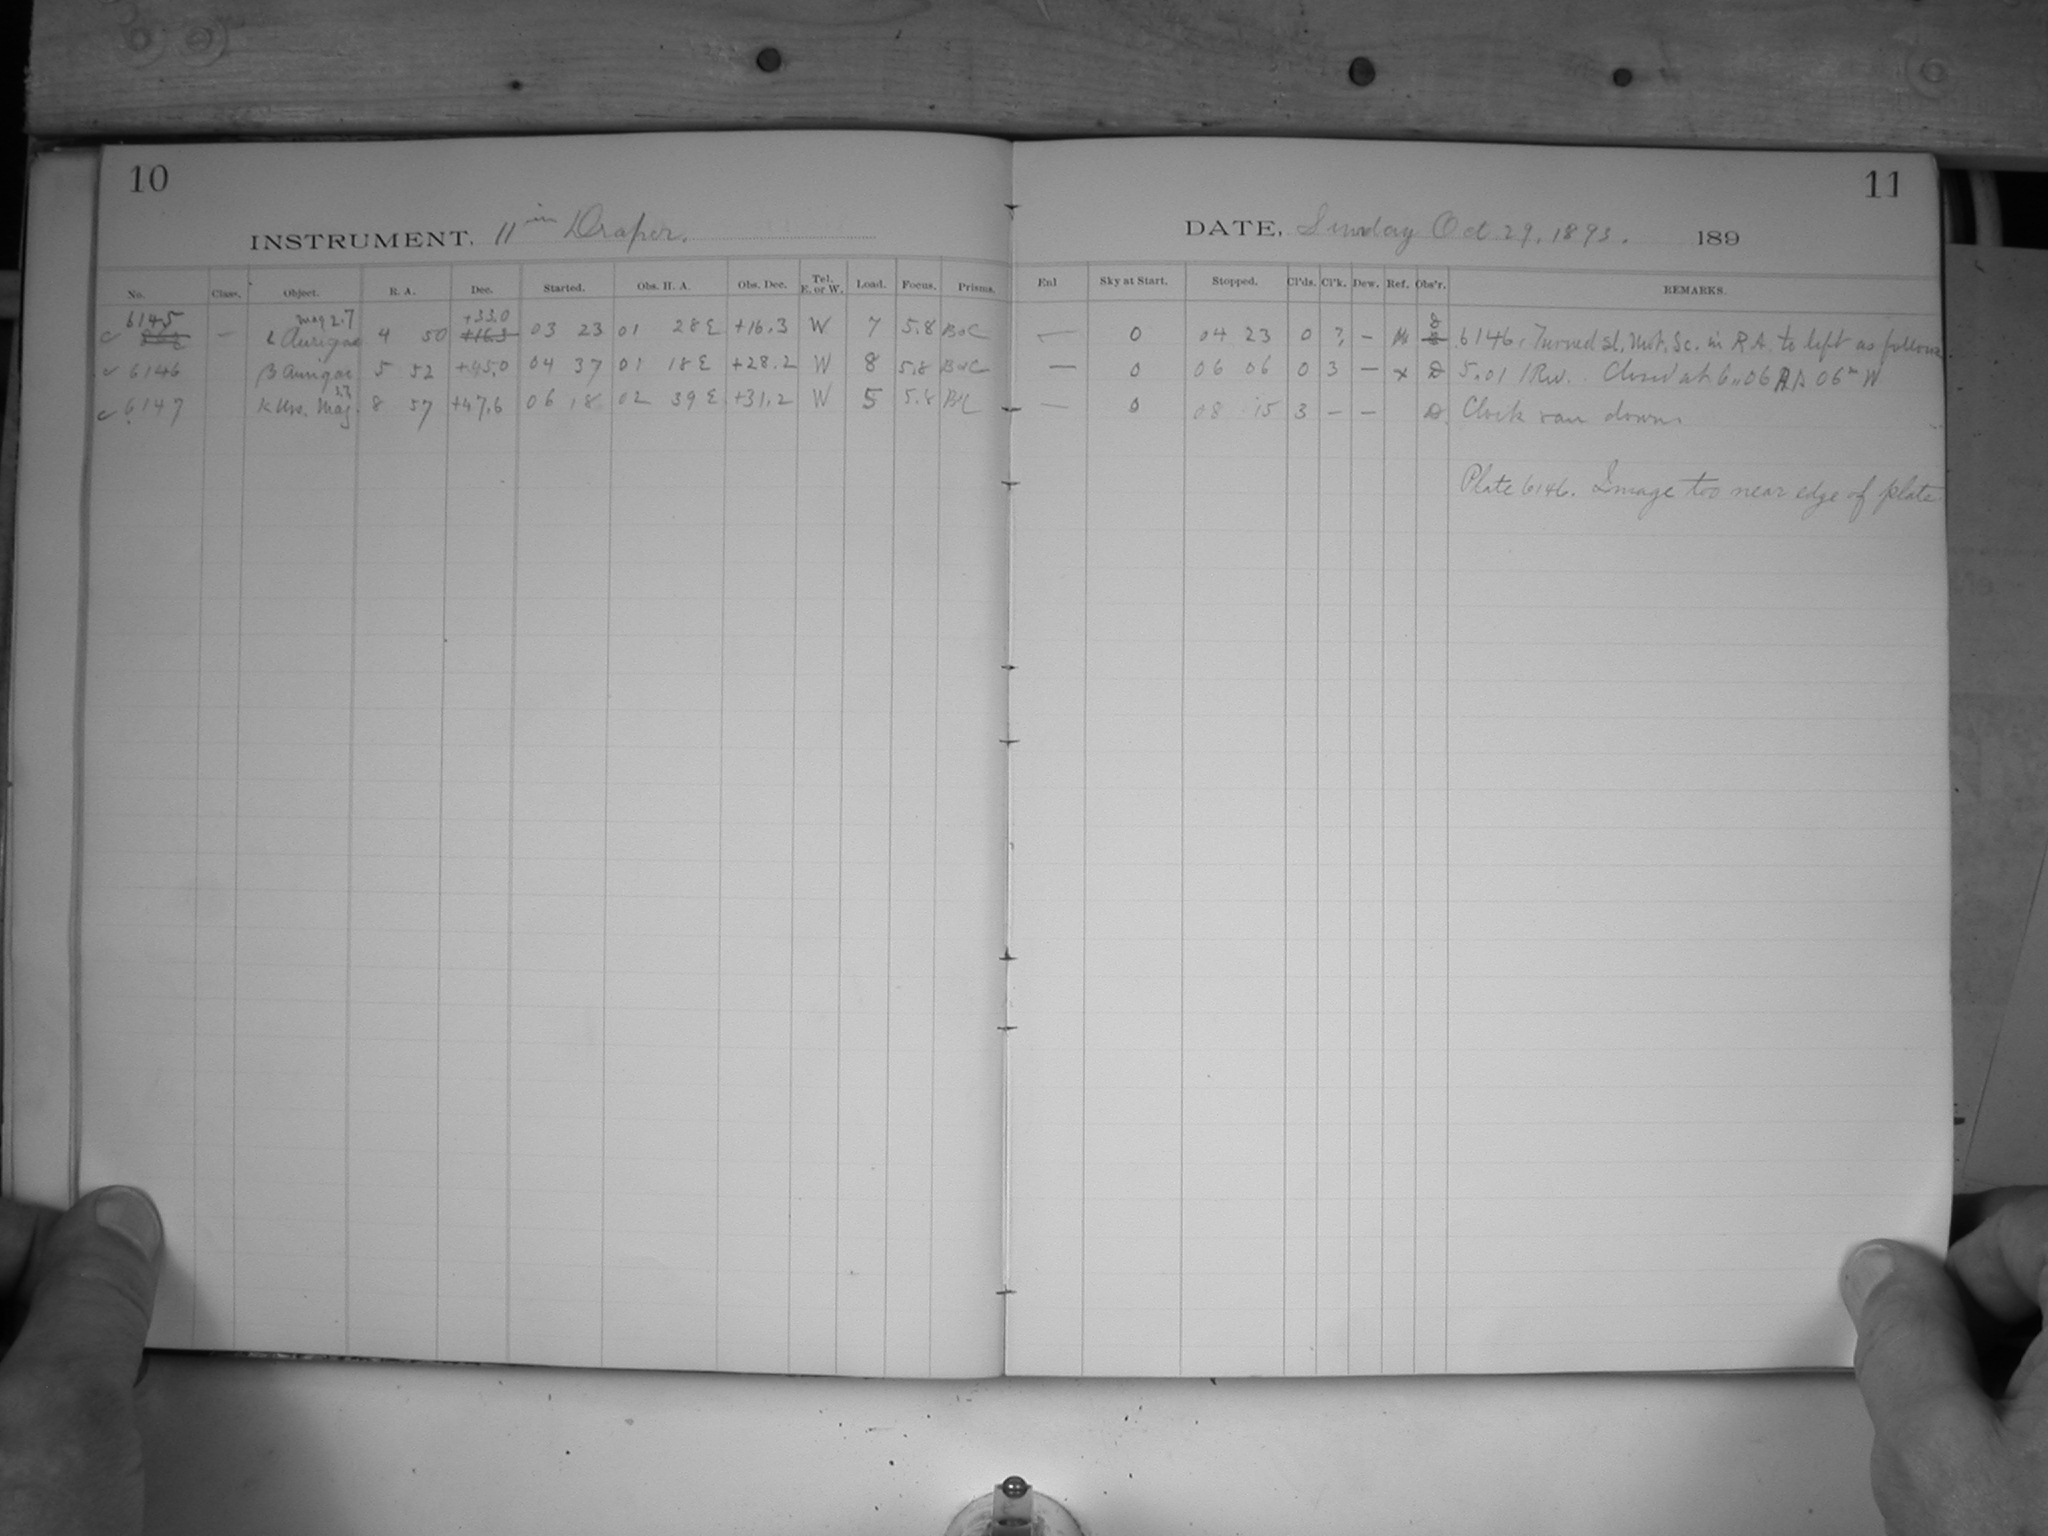 10
11
INSTRUMENT, 11 in Draper.
DATE, Sunday Oct. 29, 1893. 189
No. Class. Object. R. A. Dec. Started. Obs. H. A. Obs. Dec. Tel. E. or W. Load. Focus. Prisms. Enl Sky at Start. Stopped. Cl'ds. Cl'k. Dew. Ref. Obs'r. REMARKS.
6145 mag 2.7 +33.0
— ι Aurigae 4 50 +16.3 03 23 01 28 E +16.3 W 7 5.8 B&C — 0 04 23 0 ? — 6146, Turned sl. Mot. Sc. in R A. to left as follows
6146 β Aurigae 5 52 +45.0 04 37 01 18 E +28.2 W 8 5.8 B&C — 0 06 06 0 3 — x D 5.01 1 Rev. Closed at 6.06 06m W
6147 κ Urs. Maj. 8 57 +47.6 06 18 02 39 E +31.2 W 5 5.8 — 0 08 15 3 — — D Clock ran down
Plate 6146. Image too near edge of plate